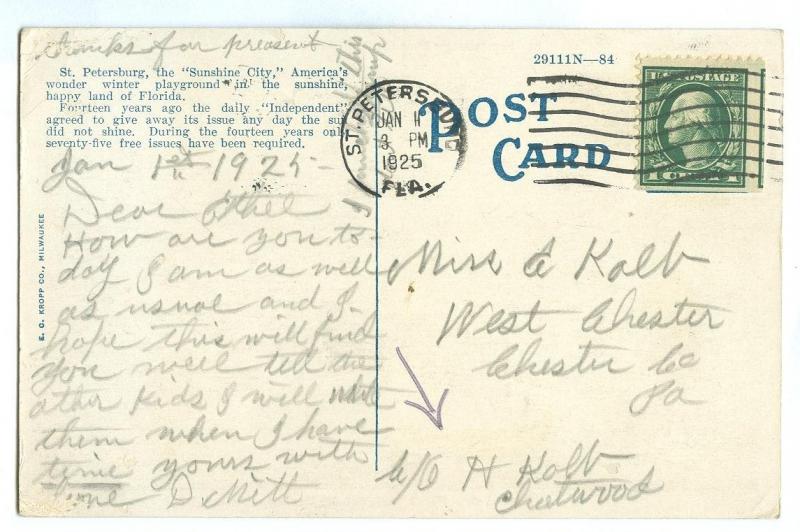 thanks for preasent
St. Petersburg, the "Sunshine City," America's
wonder winter playground in the sunshine,
happy land of Florida.
Fourteen years ago the daily "Independent"
agreed to give away its issue any day the sun
did not shine. During the fourteen years only
seventy-five free issues have been required.
Jan 1st 1925
Dear Ethel
How are you to-
day I am as well
as usual and I
hope this will find
you well tell the
other kids I will write
them when I have
time yours with
love D. Mitt
E. C. KROPP CO., MILWAUKEE
29111N—84
POST
CARD
ST. PETERSBURG
JAN 11
3 PM
1925
FLA.
U.S. POSTAGE
Miss E Kolb
West Chester
Chester Co
Pa
c/o H Kolb
Chatwood